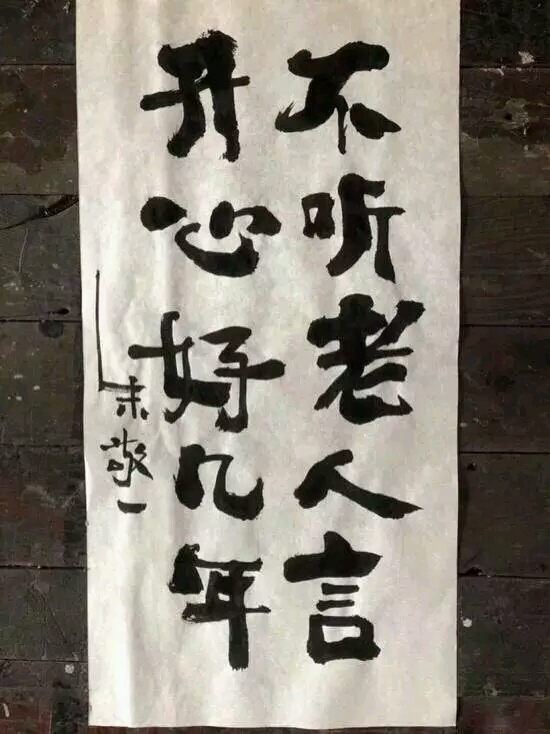 不听老人言
开心好几年
朱敬一